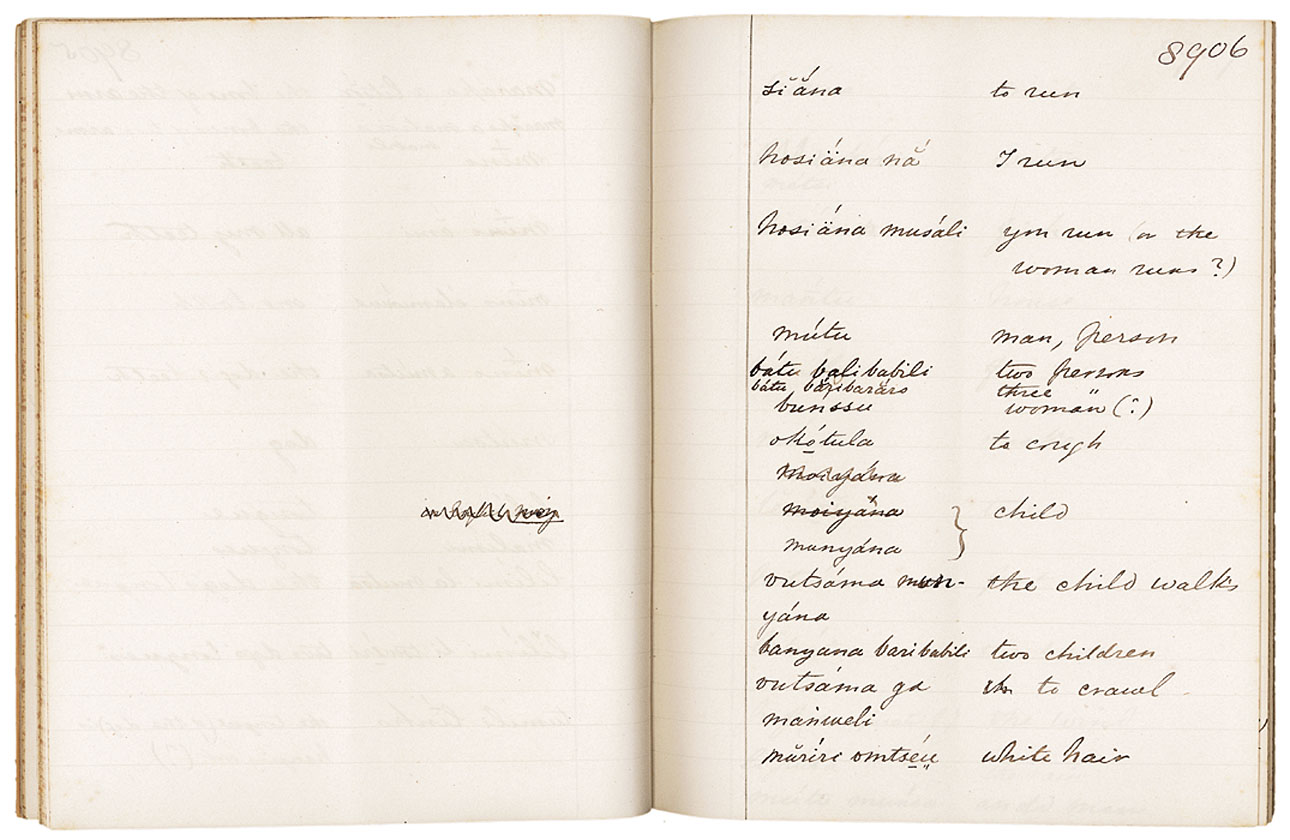 8906
šĭána to run
hosiäna nắ I run
hosiäna musáli you run (or the
woman runs?)
mútu man, person
bátu balibabili two persons
bátu baribaráro three "
bunssu woman (?)
okótula to cough
moiyána
moiyána child
munyána
vutsáma mun- the child walks
yána
banyana baribabili two children
vutsáma ga to crawl
mánweli
mŭríri omtséṳ white hair